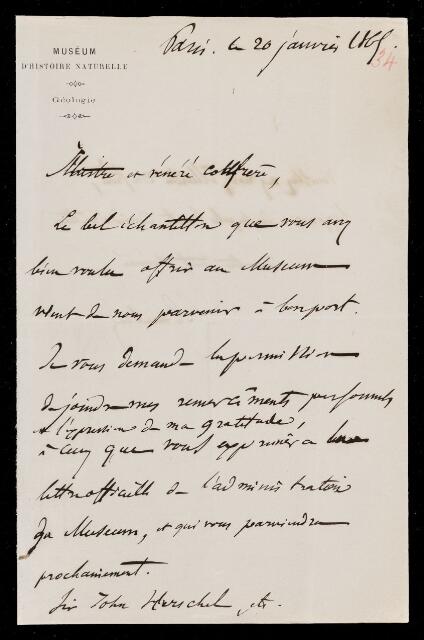 MUSÉUM
D'HISTOIRE NATURELLE
Géologie
Paris. le 20 janvier 1865.
34
Maître et vénéré confrère,
Le bel échantillon que vous avez
bien voulu offrir au Museum
vient de nous parvenir à bon port.
Je vous demande la permission
de joindre mes remercîments personnels
et l'expression de ma gratitude,
à ceux que vous exprimera une
lettre officielle de l'administration
du Museum, et qui vous parviendra
prochainement.
Sir John Herschel, etc.